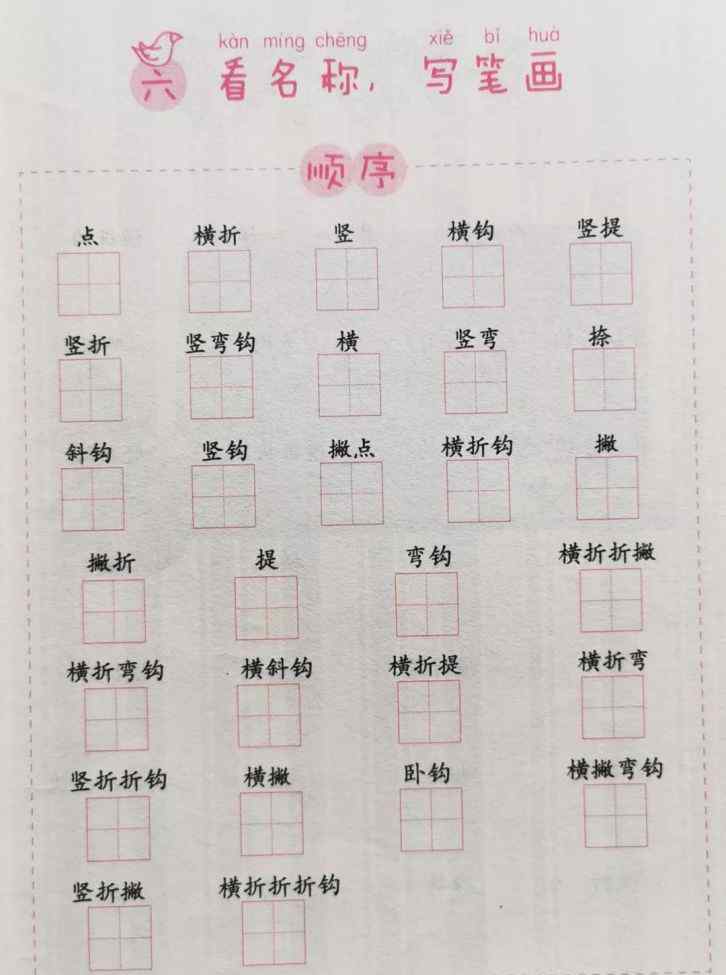 kàn míng chēng xiě bǐ huà
六 看名称，写笔画
顺序
点 横折 竖 横钩 竖提
竖折 竖弯钩 横 竖弯 捺
斜钩 竖钩 撇点 横折钩 撇
撇折 提 弯钩 横折折撇
横折弯钩 横斜钩 横折提 横折弯
竖折折钩 横撇 卧钩 横撇弯钩
竖折撇 横折折折钩